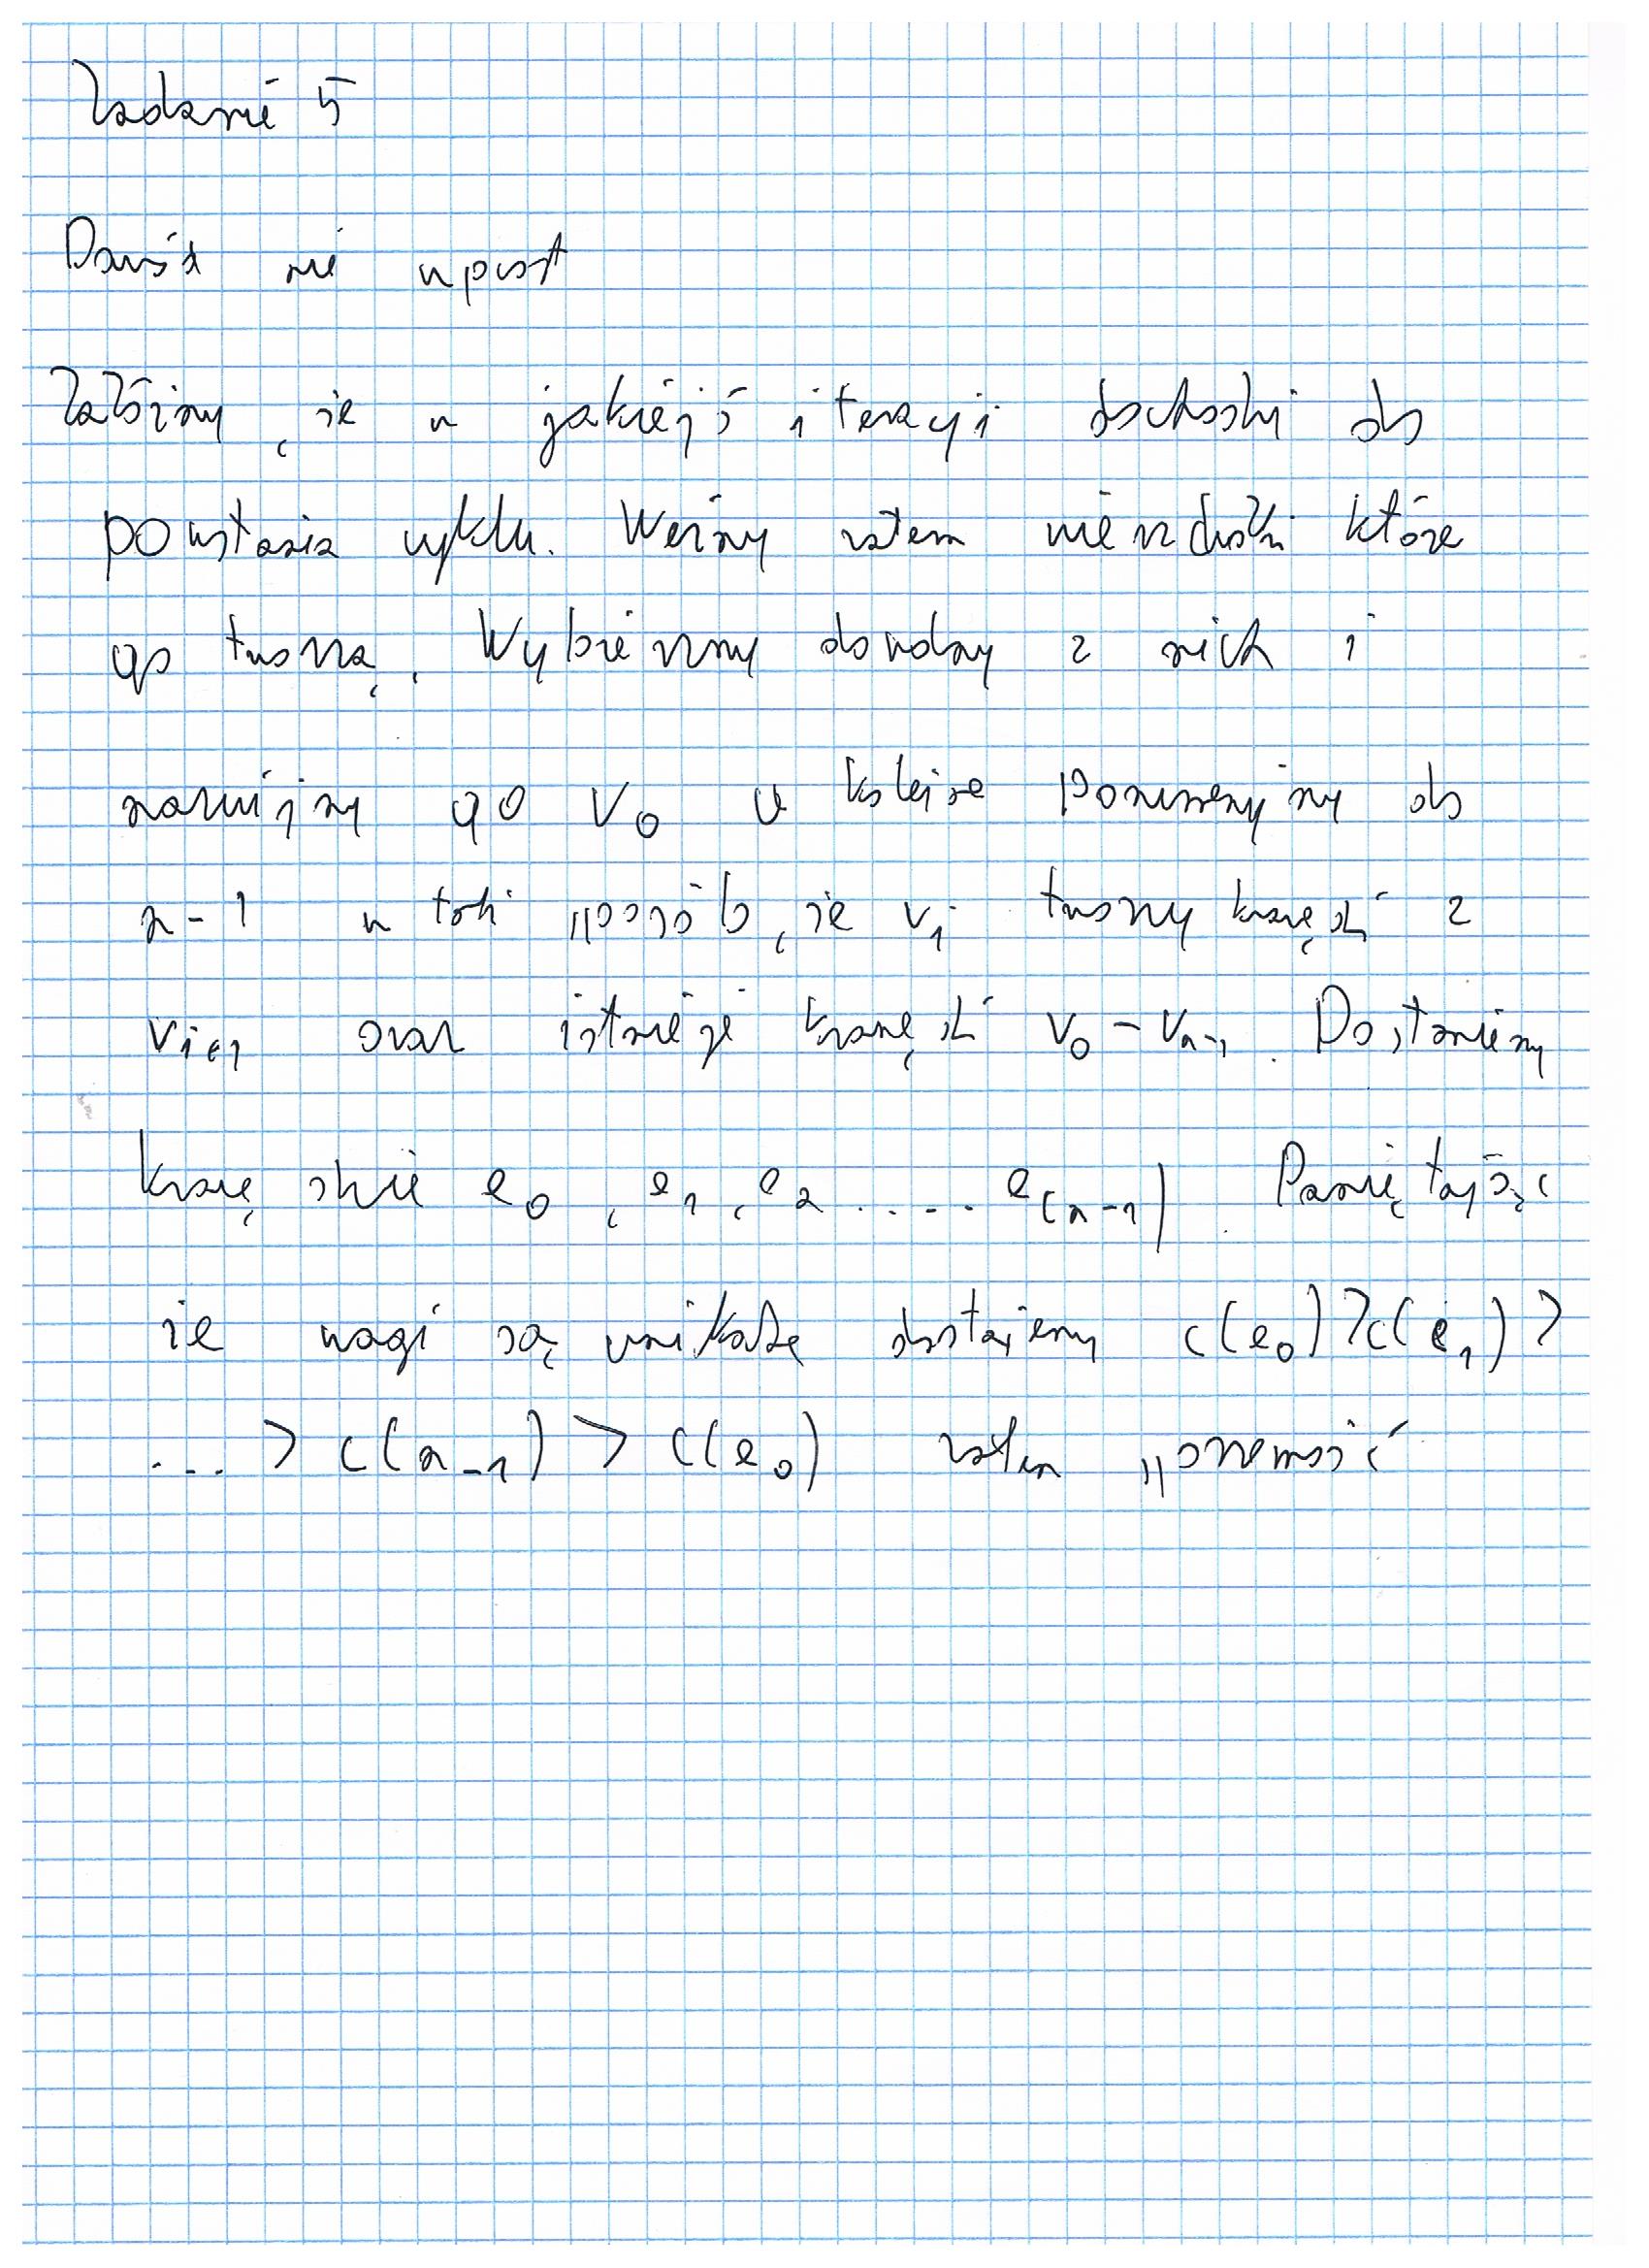 Zadanie 5
Dowód nie wprost
Załóżmy, że w jakiejś iteracji dochodzi do
powstania cyklu. Weźmy zatem wierzchołki które
go tworzą. Wybierzmy dowolny z nich i
nazwijmy go v0 a kolejne ponumerujmy do
n-1 w taki sposób, że vi tworzy krawędź z
vi+1 oraz istnieje krawędź v0 - vn-1. Dostaniemy
krawędzie e0, e1, e2 ..... e(n-1). Pamiętając
że wagi są unikalne dostajemy c(e0)>c(e1)>
...> c(n-1) > c(e0) zatem sprzeczność